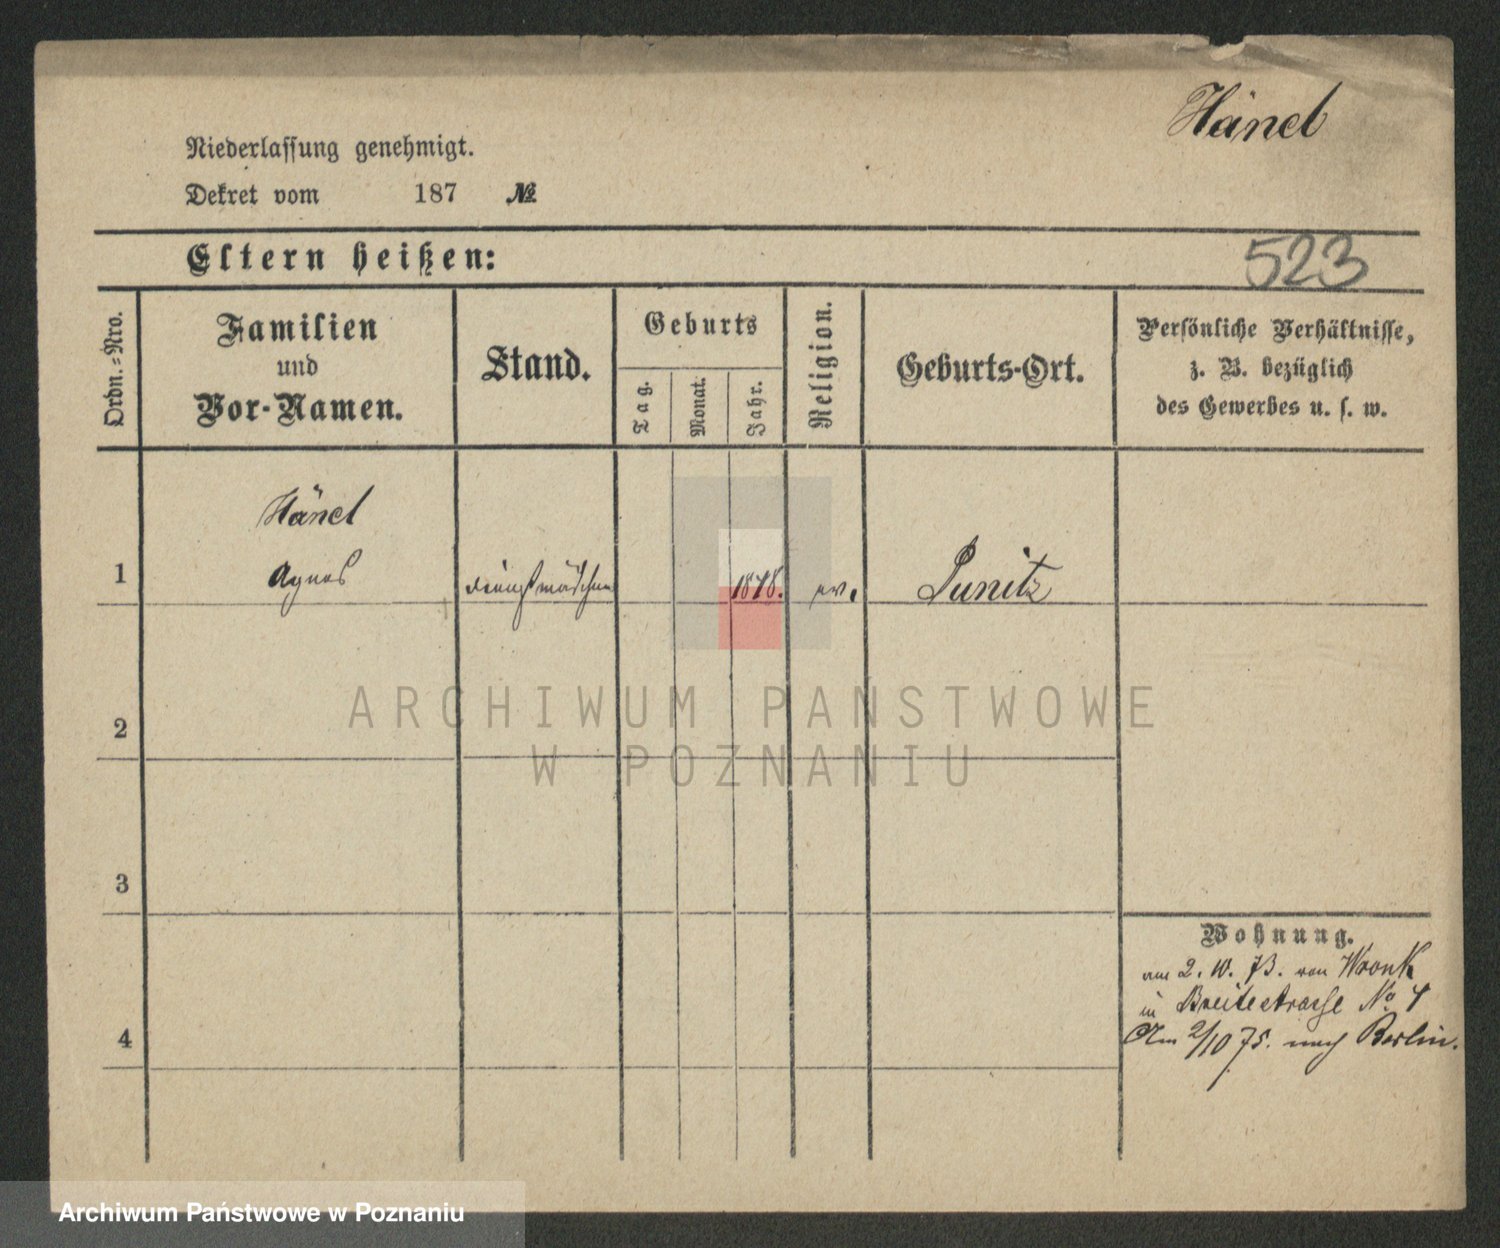 Hänel
Niederlassung genehmigt.
Dekret vom 187 №
Eltern heißen:
523
Ordn.-Nro.
Familien
und
Vor-Namen.
Stand.
Geburts
Tag.
Monat.
Jahr.
Religion.
Geburts-Ort.
Persönliche Verhältnisse,
z. B. bezüglich
des Gewerbes u. s. w.
Hänel
1 Agnes Dienstmädchen ev. Punitz
2
3
4
Wohnung.
am 2. 10. 73. von Wronk
in Breitestrasse No
Am 2/10 75. nach Berlin.
ARCHIWUM PAŃSTWOWE
W POZNANIU
Archiwum Państwowe w Poznaniu